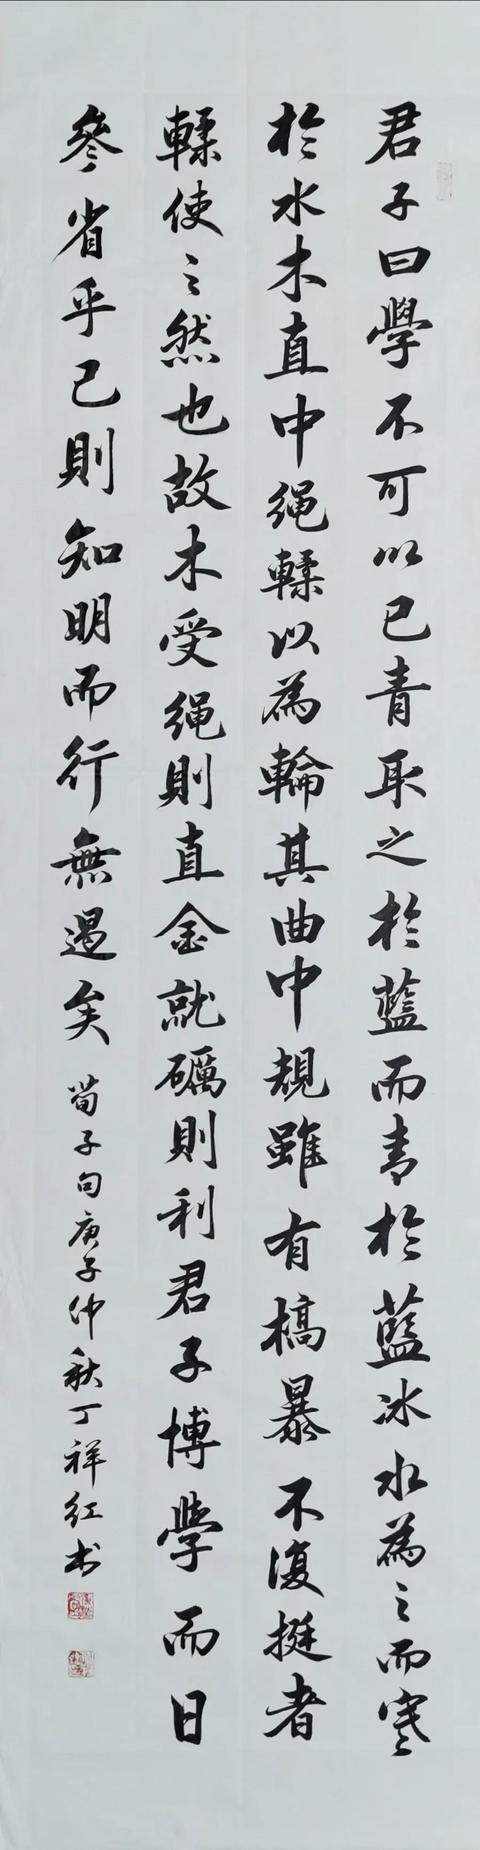 君子曰學不可以已青取之於藍而青於藍冰水為之而寒
於水木直中繩輮以為輪其曲中規雖有槁暴不復挺者
輮使之然也故木受繩則直金就礪則利君子博學而日
參省乎己則知明而行無過矣
荀子句庚子仲秋丁祥红书